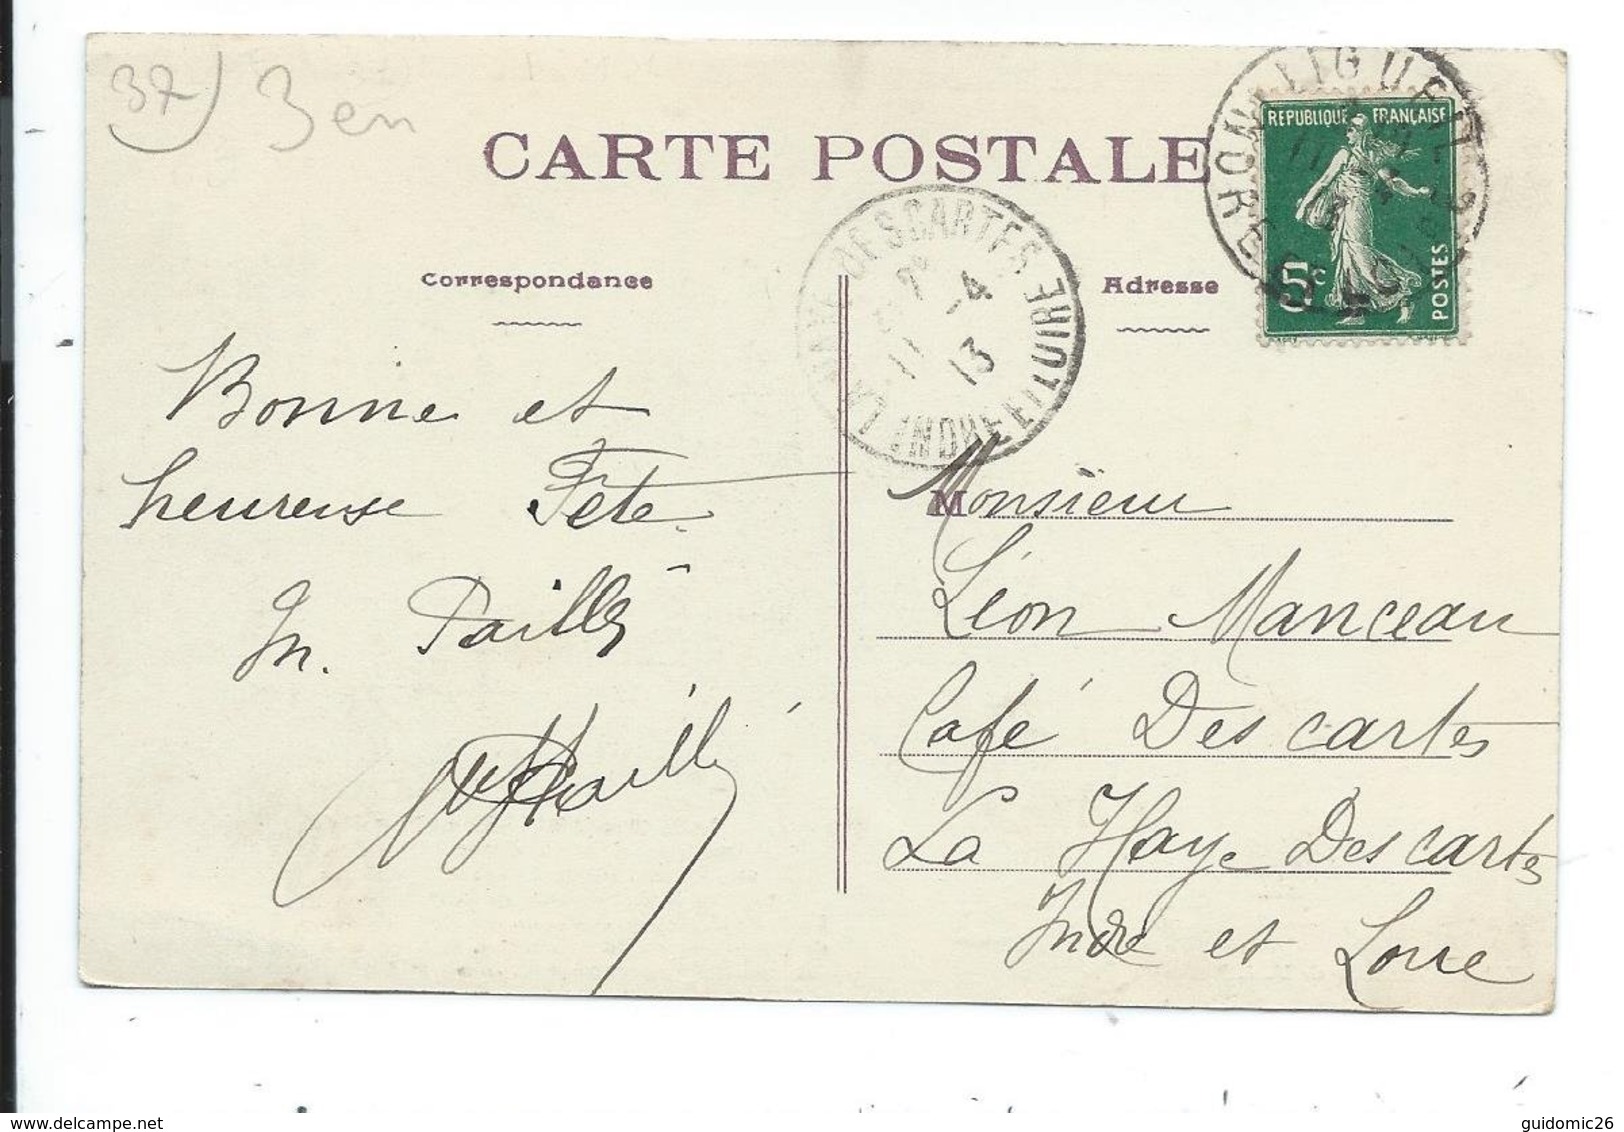 37 3 en
CARTE POSTALE
REPUBLIQUE FRANÇAISE
5c
POSTES
LIGUEIL
DESCARTES
INDRE ET LOIRE
11 -4
13
Correspondance
Adresse
Bonne et
heureuse Fête
M. Paillé
Paillé
Monsieur
Léon Manceau
Café Descartes
La Haye Descartes
Indre et Loire
guidomic26